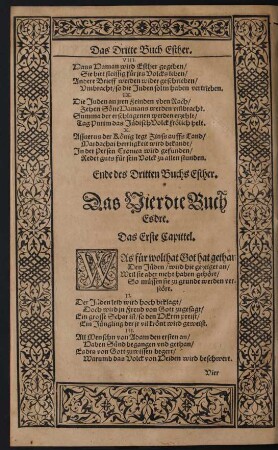 Das Dritte Buch Esther.
VIII.
Haus Haman wird Esther gegeben/
Sie bitt fleissig für jrs Volcks leben/
Andere Brieff werden wider geschrieben/
Umbracht/ so die Juden solln haben vertrieben.
IX.
Die Juden an jren Feinden üben Rach/
Zehen Söne Hamans werden umbracht.
Summa der erschlagenen werden erzehlt/
Tag Purim das Jüdisch Volck frölich helt.
X.
Assuerus der König legt Zinse auffs Land/
Mardachai herrligkeit wird bekandt/
In der Persen Cronica wird gefunden/
Redet guts für sein Volck zu allen stunden.
Ende des Dritten Buchs Esther.
Das Vierdte Buch
Esdre.
Das Erste Capittel.
WAs für wolthat Got hat gethan
Den Jüden/ wird hie gezeiget an/
Weil sie aber nicht haben gehört/
So müssen sie zu grunde werden verstöret.
II.
Der Jüden leid wird hoch beklagt/
Doch wird in Freud von Gott zugesagt/
Ein grosse Schar ist/ so den HErrn preist/
Ein Jüngling der je viel krönt wird geweist.
III.
All Menschn von Adam den ersten an/
Haben Sünd begangen und gethan/
Esdra von Gott zu wissen begert/
Warumb das Volck von Heiden wird beschwert.
Vier